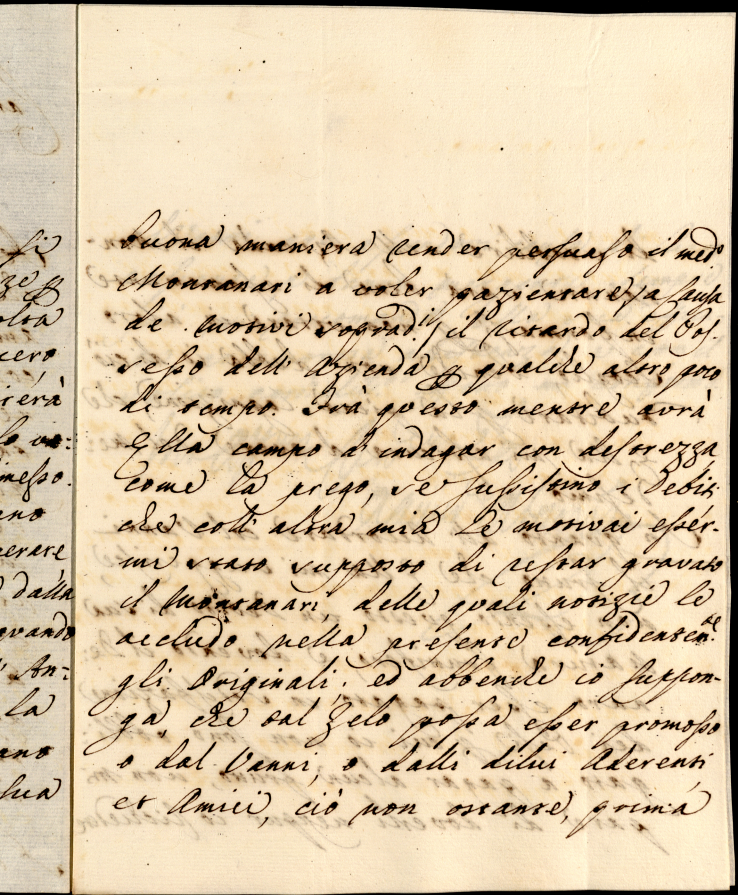 buona maniera render persuaso il med.o
Montanari a voler pazientare /a causa
de motivi soprad.ti/ il ritardo del Pos-
sesso dell' Azienda p qualche altro poco
di tempo. Frà questo mentre avrà
Ella campo d' indagar con destrezza
come la prego, se sussistino i debiti
che coll' altra mia Le motivai esser-
mi stato supposto di restar gravato
il Montanari, delle quali notizie le
accludo nella presente confidentem.te
gli Originali; ed abbenche io suppon-
ga, che tal Zelo possa esser promosso
o dal Vanni, o dalli dilui Aderenti
et Amici, ciò non ostante, prima